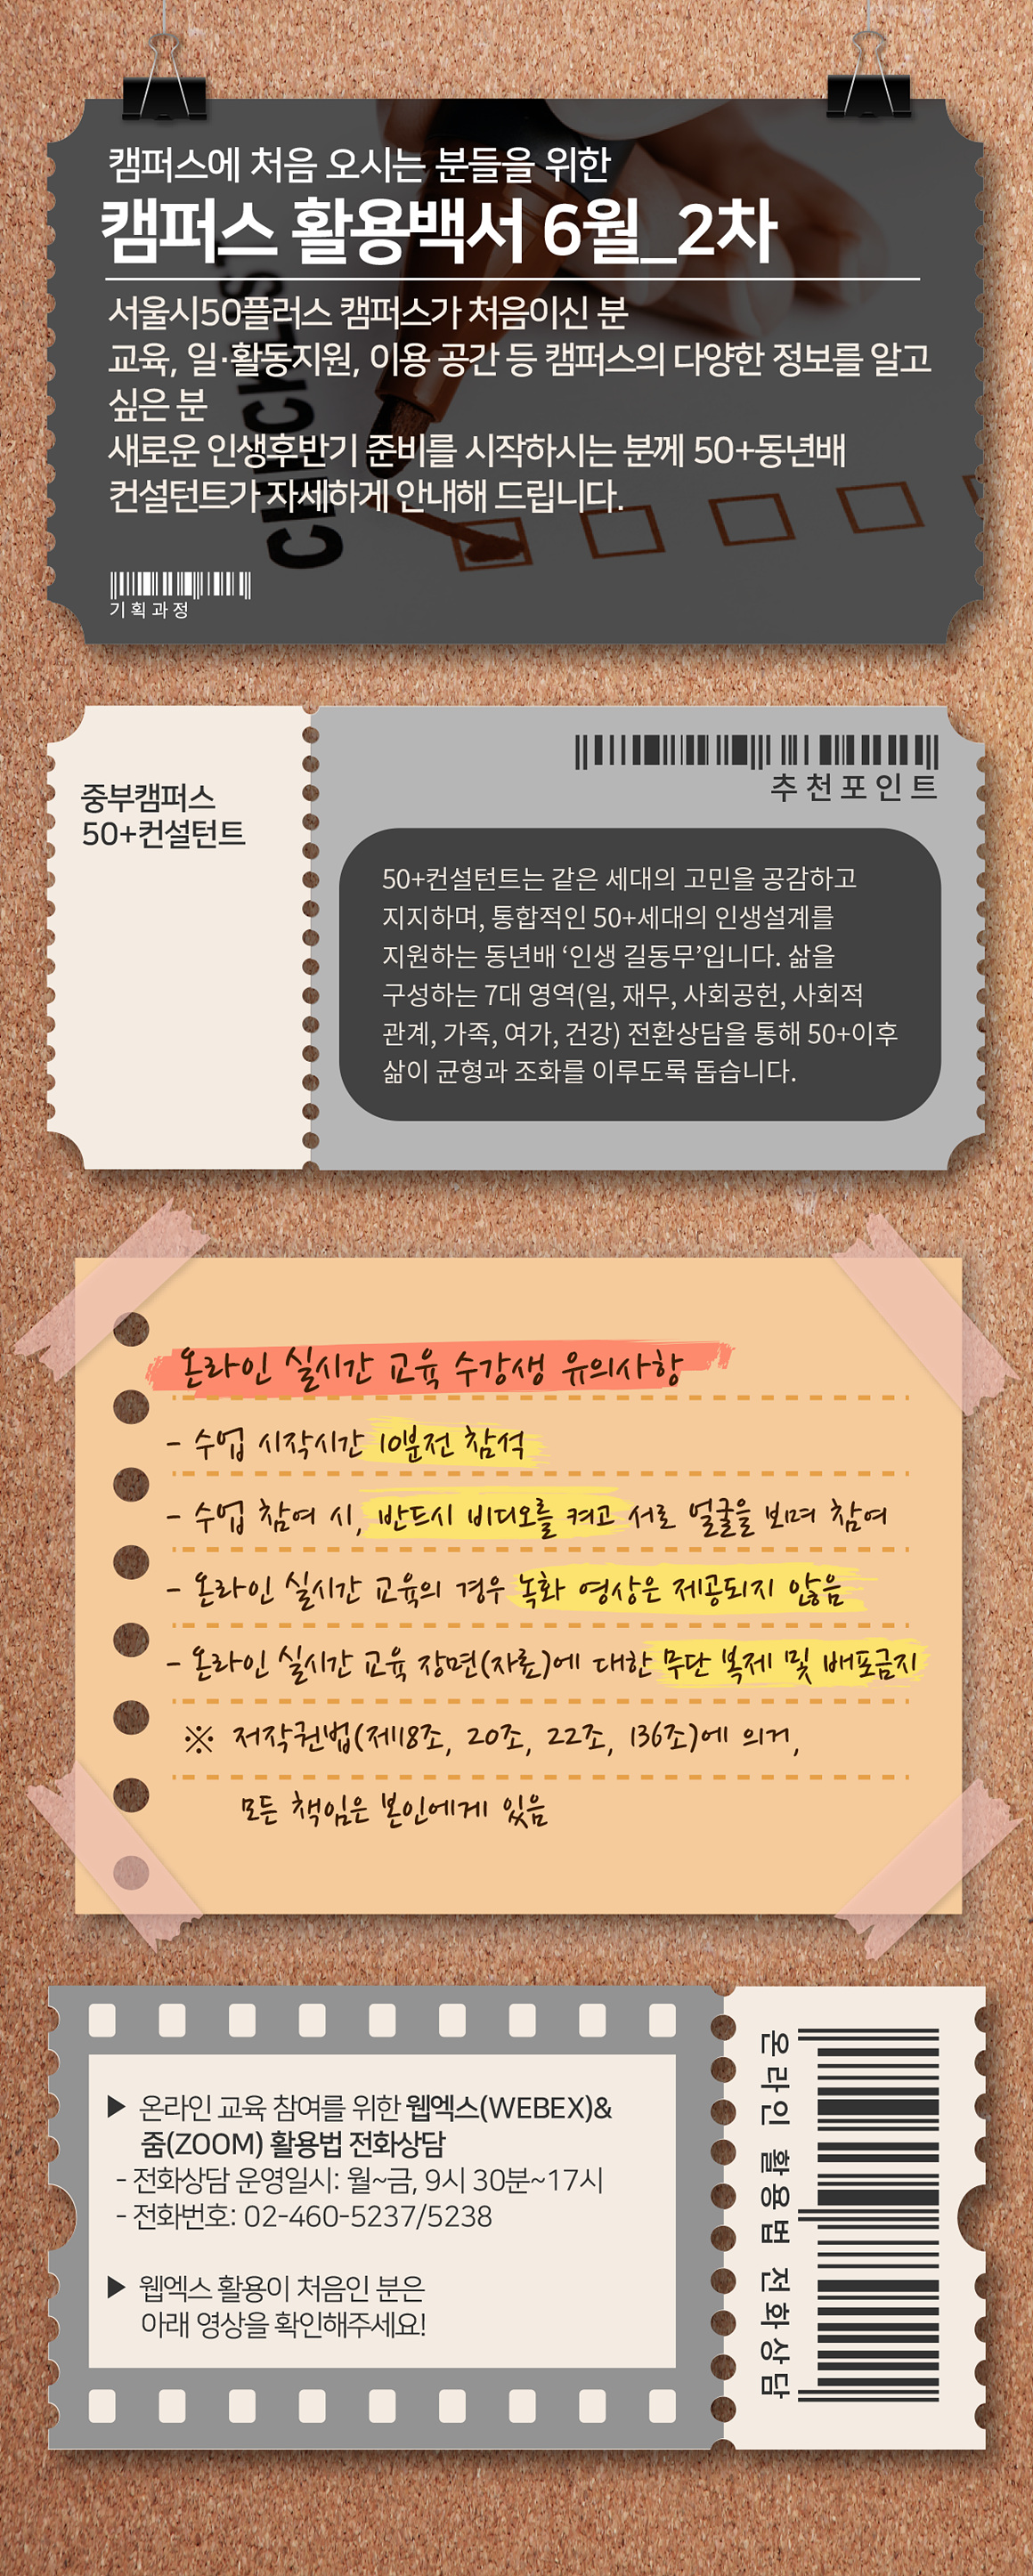 캠퍼스에 처음 오시는 분들을 위한
캠퍼스 활용백서 6월_2차
서울시50플러스 캠퍼스가 처음이신 분
교육, 일·활동지원, 이용 공간 등 캠퍼스의 다양한 정보를 알고
싶은 분
새로운 인생후반기 준비를 시작하시는 분께 50+동년배
컨설턴트가 자세하게 안내해 드립니다.
기획과정
중부캠퍼스
50+컨설턴트
추천포인트
50+컨설턴트는 같은 세대의 고민을 공감하고
지지하며, 통합적인 50+세대의 인생설계를
지원하는 동년배 ‘인생 길동무’입니다. 삶을
구성하는 7대 영역(일, 재무, 사회공헌, 사회적
관계, 가족, 여가, 건강) 전환상담을 통해 50+이후
삶이 균형과 조화를 이루도록 돕습니다.
온라인 실시간 교육 수강생 유의사항
- 수업 시작시간 10분전 참석
- 수업 참여 시, 반드시 비디오를 켜고 서로 얼굴을 보며 참여
- 온라인 실시간 교육의 경우 녹화 영상은 제공되지 않음
- 온라인 실시간 교육 장면(자료)에 대한 무단 복제 및 배포금지
※ 저작권법(제18조, 20조, 22조, 136조)에 의거,
모든 책임은 본인에게 있음
▶ 온라인 교육 참여를 위한 웹엑스(WEBEX)&
줌(ZOOM) 활용법 전화상담
- 전화상담 운영일시: 월~금, 9시 30분~17시
- 전화번호: 02-460-5237/5238
▶ 웹엑스 활용이 처음인 분은
아래 영상을 확인해주세요!
온라인 활용법 전화상담